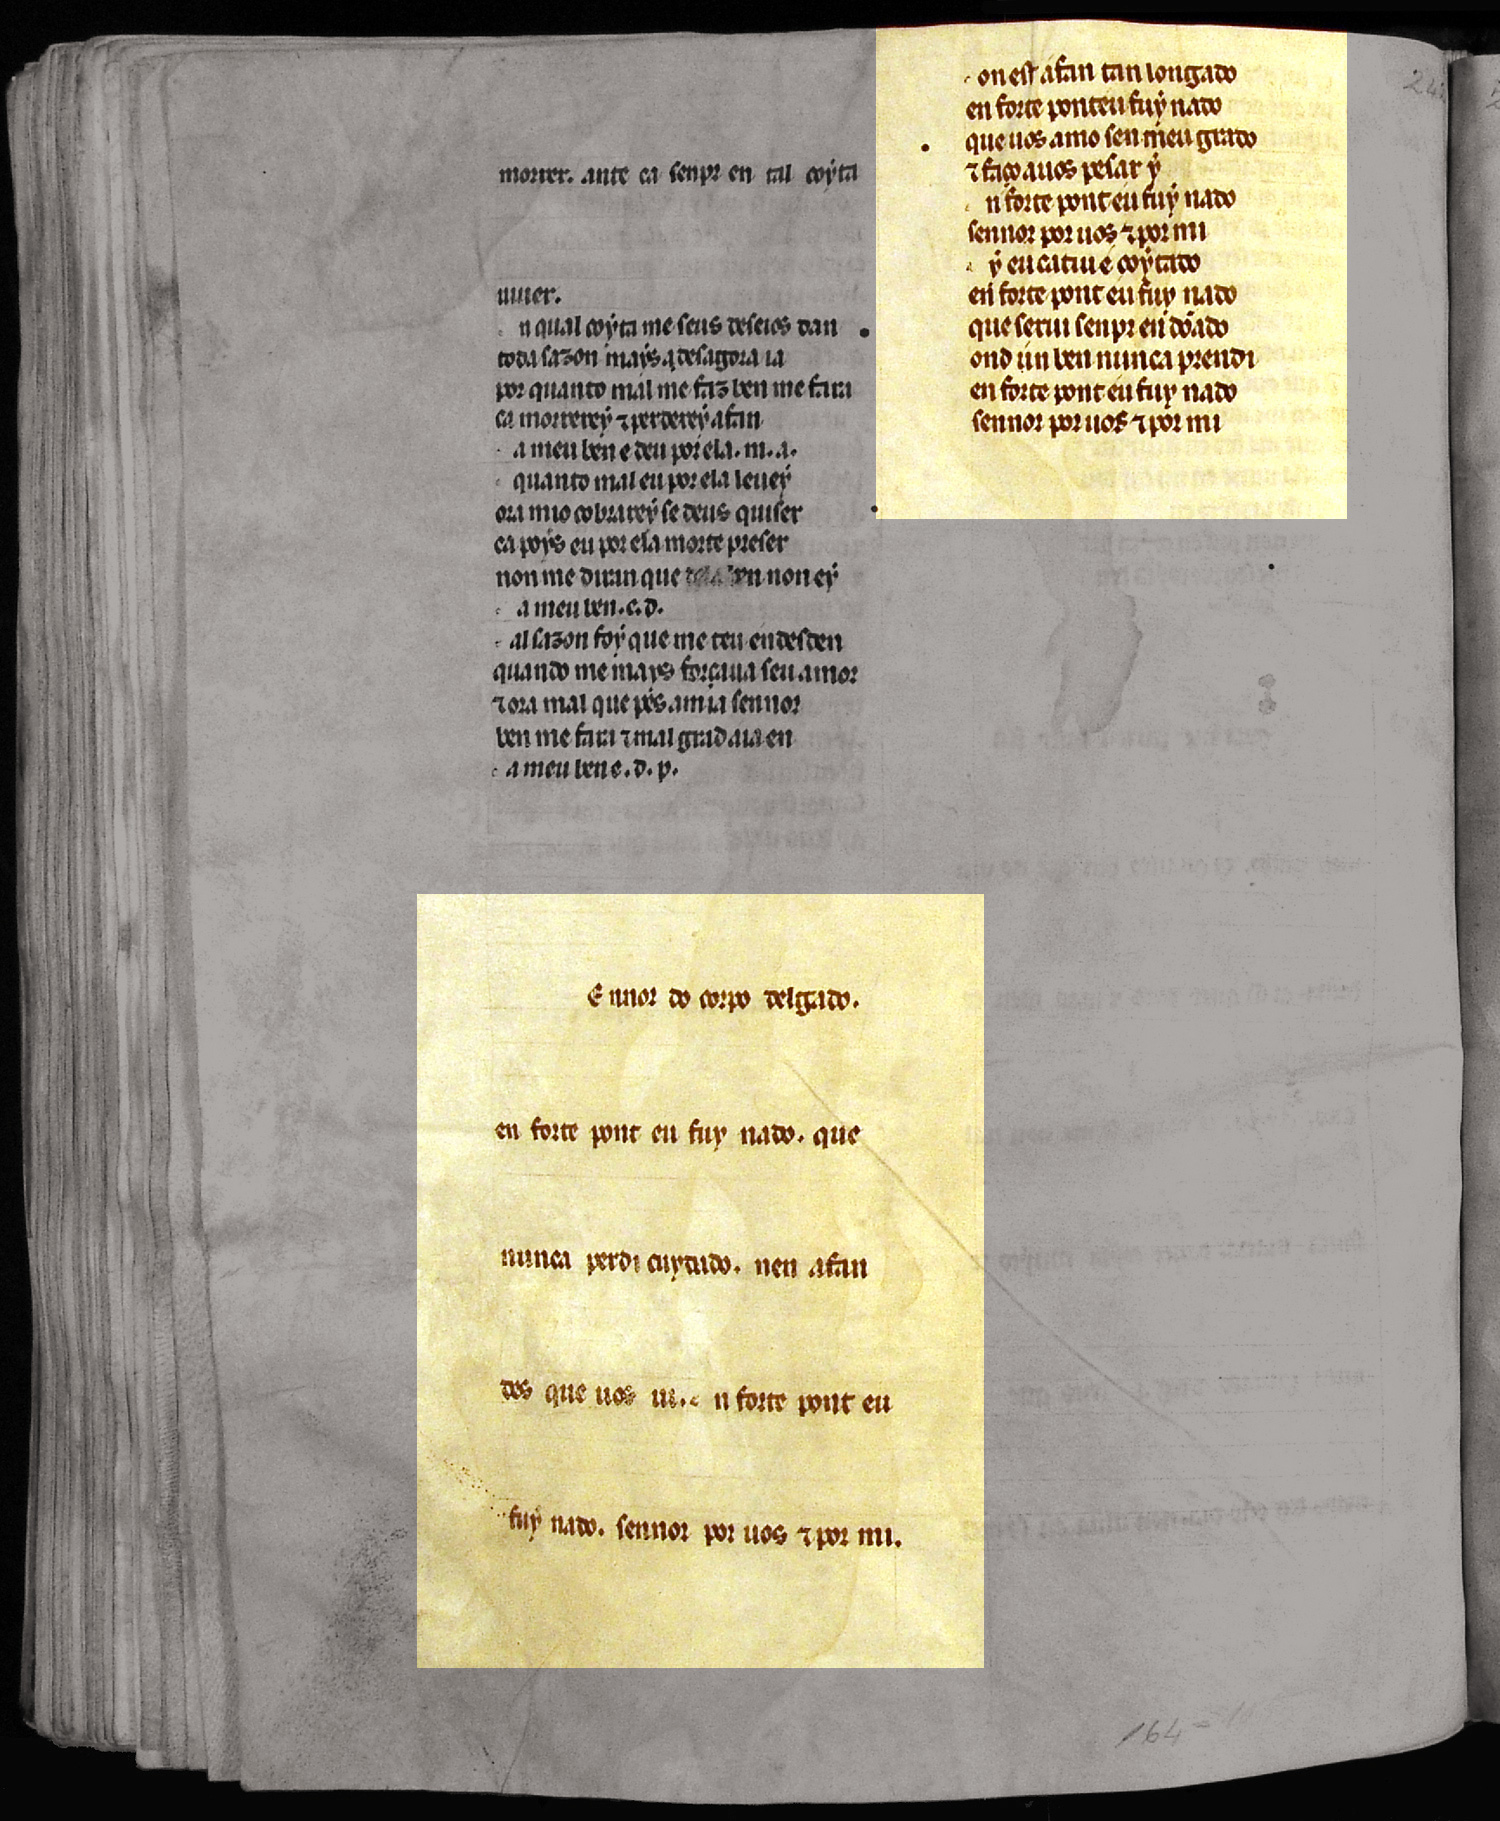 morrer. ante ca senpr en tal coỹta
uiuer.
n qual coỹta me seus deseios dan
toda sazon maẏs q̇ desagora ia
por quanto mal me faz ben me fara
ca morrereẏ ⁊ perdereẏ afan
a meu ben e deu por ela. m. a.
quanto mal eu por ela leueẏ
ora mio cobrareẏ se deus quiser
ca poẏs eu por ela morte preser
non me diran que ben non eẏ
a meu ben. e. d.
al sazon foẏ que me teu en desden
quando me mays forçaua seu amor
⁊ ora mal que pes a mia sennor
ben me fara ⁊ mal grad aia en
a meu ben e. d. p.
E nnor do corpo delgado.
en forte pont eu fuy nado. que
nunca perdi cuydado. nen afan
des que uos ui. n forte pont eu
fuẏ nado. sennor por uos ⁊ por mi.
on est afan tan longado
en forte ponteu fuẏ nado
que uos amo sen meu grado
⁊ faço a uos pesar ẏ
n forte pont eu fuẏ nado
sennor por uos ⁊ por mi
ẏ eu catiu e coẏtado
en forte pont eu fuy nado
que serui senpr en dōado
ond un ben nunca prendi
en forte pont eu fuy nado
sennor por uos ⁊ por mi
164